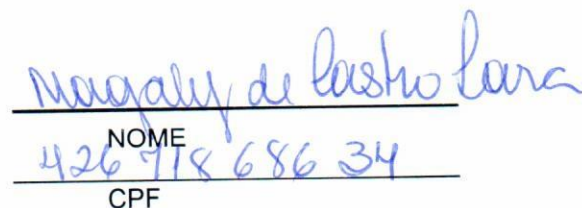 Magaly de Castro Lara
NOME
426 718 686 34
CPF